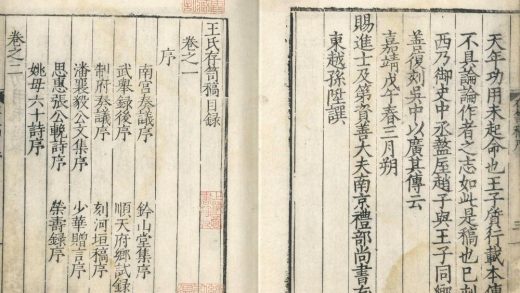 天年功用未起命也王子行載本傳
不具論論作者之志如此是稿也已刻
西乃御史中丞盩厔趙子與王子同鄉
善復刻吳中以廣其傳云
嘉靖戊午春三月朔
賜進士及第資善大夫南京禮部尚書
東越孫陞譔
王氏存笥稿目録
卷之一
序
南宮奏議序　鈐山堂集序
武舉録後序　順天府鄉試録
制府奏議序　刻河垣稿序
潘襄毅公文集序　少華贈言序
思惠張公輓詩序　榮壽録序
姚母六十詩序
卷之二